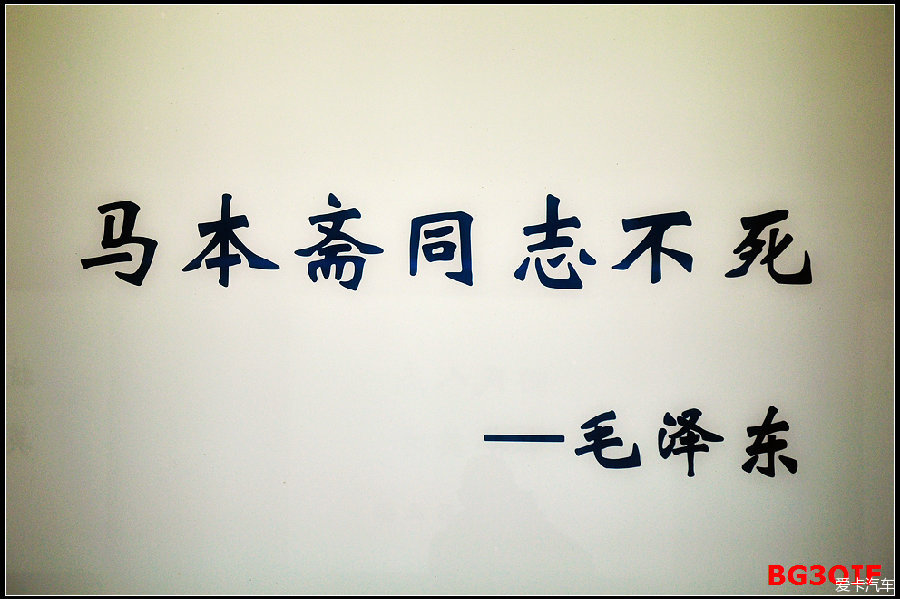 马本斋同志不死
—毛泽东
BG3QIF
爱卡汽车